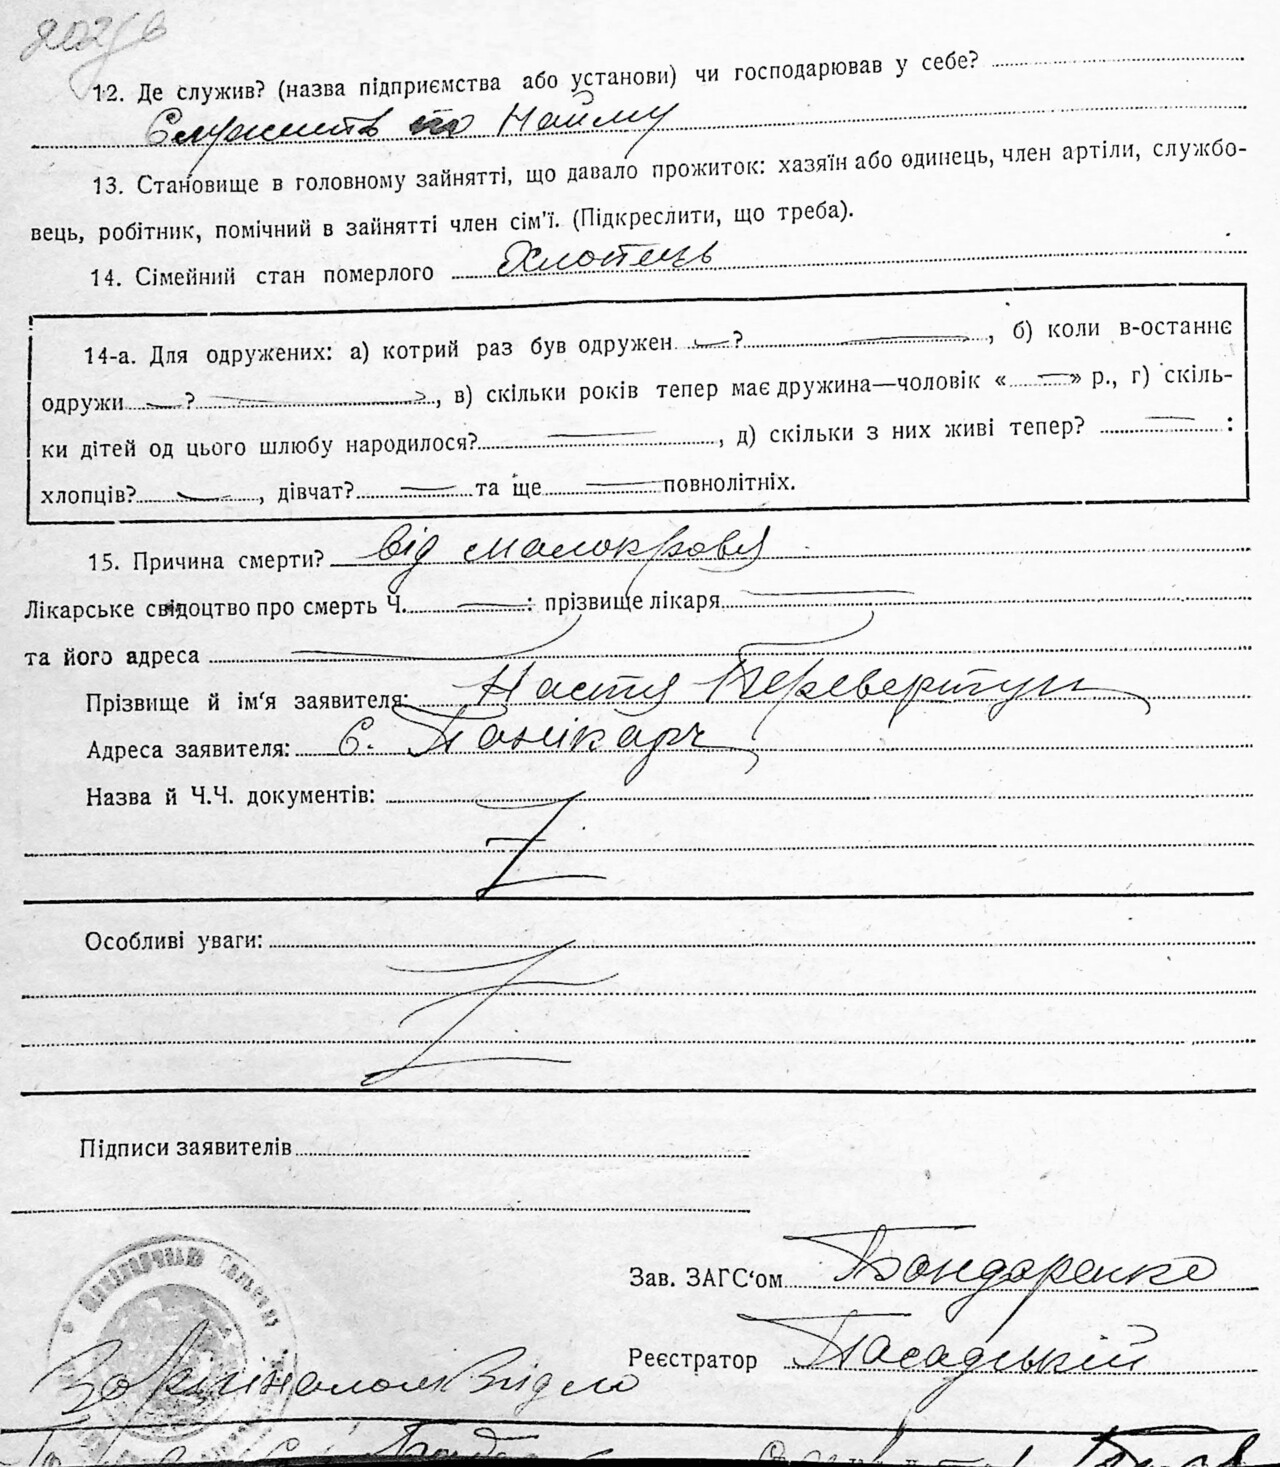 12. Де служив? (назва підприємства або установи) чи господарював у себе?
Служить по Найму
13. Становище в головному зайнятті, що давало прожиток: хазяїн або одинець, член артіли, службо-
вець, робітник, помічний в зайнятті член сім'ї. (Підкреслити, що треба).
14. Сімейний стан померлого Хлопець
14-а. Для одружених: а) котрий раз був одружен ? , б) коли в-останнє
одружи ? , в) скільки років тепер має дружина—чоловік « » р., г) скіль-
ки дітей од цього шлюбу народилося? , д) скільки з них живі тепер? :
хлопців? , дівчат? та ще повнолітніх.
15. Причина смерти? Від малокровя
Лікарське свідоцтво про смерть Ч. : прізвище лікаря
та його адреса
Прізвище й ім‘я заявителя: Настя Перевертун
Адреса заявителя: С. Панікарч
Назва й Ч.Ч. документів:
Особливі уваги:
Підписи заявителів
Зав. ЗАГС‘ом Бондаренко
Реєстратор Пасадський
З Оригіналом Вірно